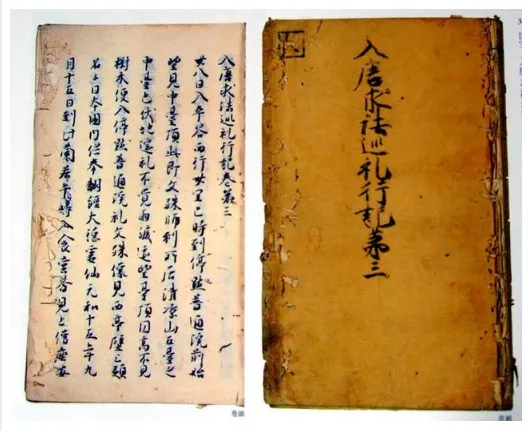 入唐求法巡礼行記第三
入唐求法巡礼行記卷第三
廿八日入平谷西行卅里巳時到停點普通院前始
望見中臺頂此即文殊師利所居清凉山五臺之
中臺也伏地遙礼不覺雨淚遙望臺頂圓高不見
樹木便入停點普通院礼文殊像見西亭壁上題
名云日本國内供奉翻經大德靈仙元和十五年九
月十五日到此蘭若齋時入食堂見上僧座安
表紙